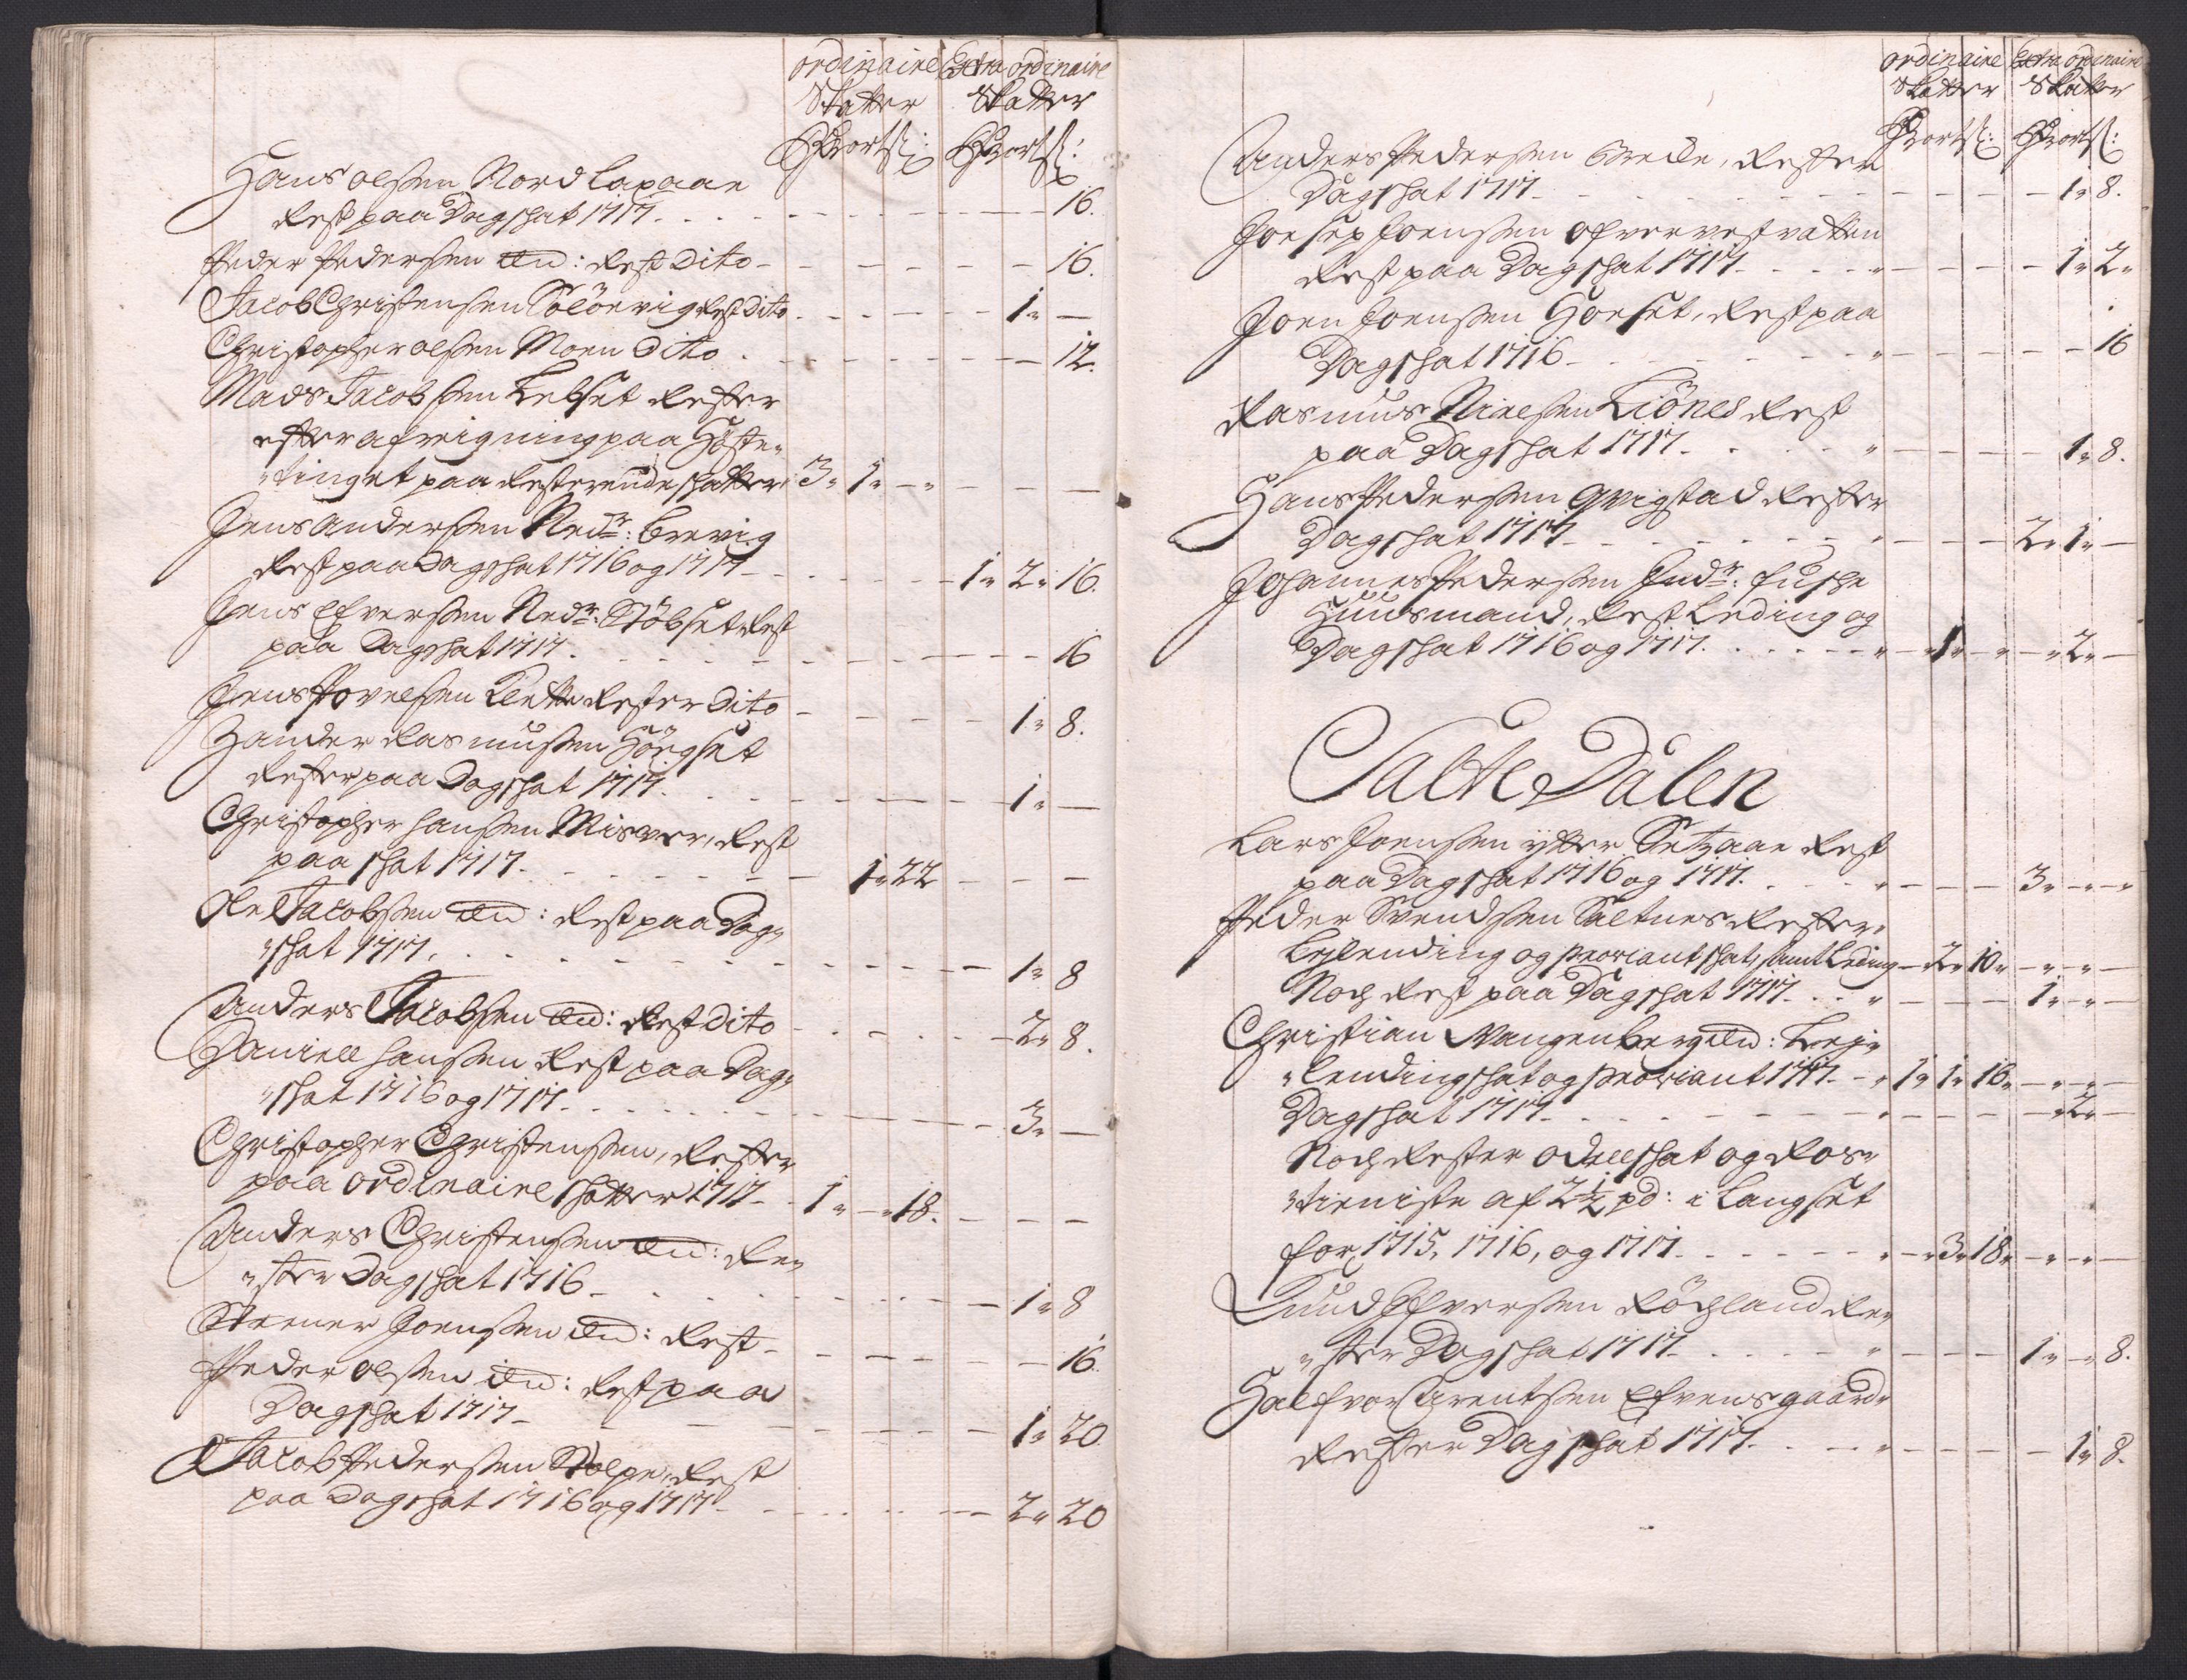 ordinaire Extra ordinaire
Skatter Skatter
Hans olsen Nordlapaae
Rest paa Dagskat 1717. 16.
Peder Pedersen Ibd: Rest Dito 16.
Jacob Christensen Soløevig Rest Dito 1" —
Christopher olsen Moen Dito 12.
Mads Jacobsen Lebset Rester
efter afreigning paa Høste"
"tinget paa Resterende skatter 3" 1" — "
Jens Andersen Nedr: brevig
Rest paa Dagskat 1716 og 1717 1" 2" 16.
Jens Efversen Nedr: Støbset Rest
paa Dagskat 1717. 16
Jens Povelsen Klette Rester Dito 1" 8.
Zander Rasmusen Høgset
Rester paa Dagskat 1717. 1" —
Christopher hansen Misver, Rest
paa skat 1717. 1" 22
Ole Jacobsen Ibd: Rest paa Dag"
"skat 1717. 1" 8
Anders Jacobsen Ibd: Rest Dito 2" 8.
Daniell hansen Rest paa Dag"
"skat 1716 og 1717. 3" —
Christopher Christensen, Rester
paa ordinaire skatter 1717 1" — " 18.
Anders Christensen Ibd: Re"
"ster Dagskat 1716 1" 8
Steener Joensen Ibd: Rest 16.
Peder olsen ibd: Rest paa
Dagskat 1717 1" 20
Jacob Pedersen Stolpe, Rest
paa Dagskat 1716 og 1717 2" 20
ordinaire Extra ordinaire
Skatter Skatter
Anders Pedersen Brede, Rester
Dagskat 1717. 1" 8.
Joesep Joensen ofvervestvatten
Rest paa Dagskat 1717. 1" 2"
Joen Joensen Goeset, Rest paa
Dagskat 1716 16
Rasmus Nielsen Kiønes Rest
paa Dagskat 1717. 1" 8.
Hans Pedersen Qvigstad Rester
Dagskat 1717 2" 1" —
Johannes Pedersen Indr: fuske
Huusmand, Rest Leding og
Dagskat 1716 og 1717. 1" " 2" —
Salte Dalen
Lars Joensen ytter Setzaae Rest
paa Dagskat 1716 og 1717. 3" — " — "
Peder Svendsen Saltnes Rester
Leylending og proviant skat, samt Leding — 2" 10"
Noch Rest paa Dagskat 1717. 1" — " —
Christian Wangenberg Ibd: Ley"
"lending skat og proviant 1717. 1" 1" 16"
Dagskat 1717. 2" —
Noch Rester odellskat og Ros"
"tieniste af 2 1/2 pd: i Langset
for 1715, 1716, og 1717. 3" 18"
Knud Efversen Røchland Re"
"ster Dagskat 1717. 1" — " 8.
Halfvor Arentsen Efvensgaard"
Rester Dagskat 1717. 1" 8.